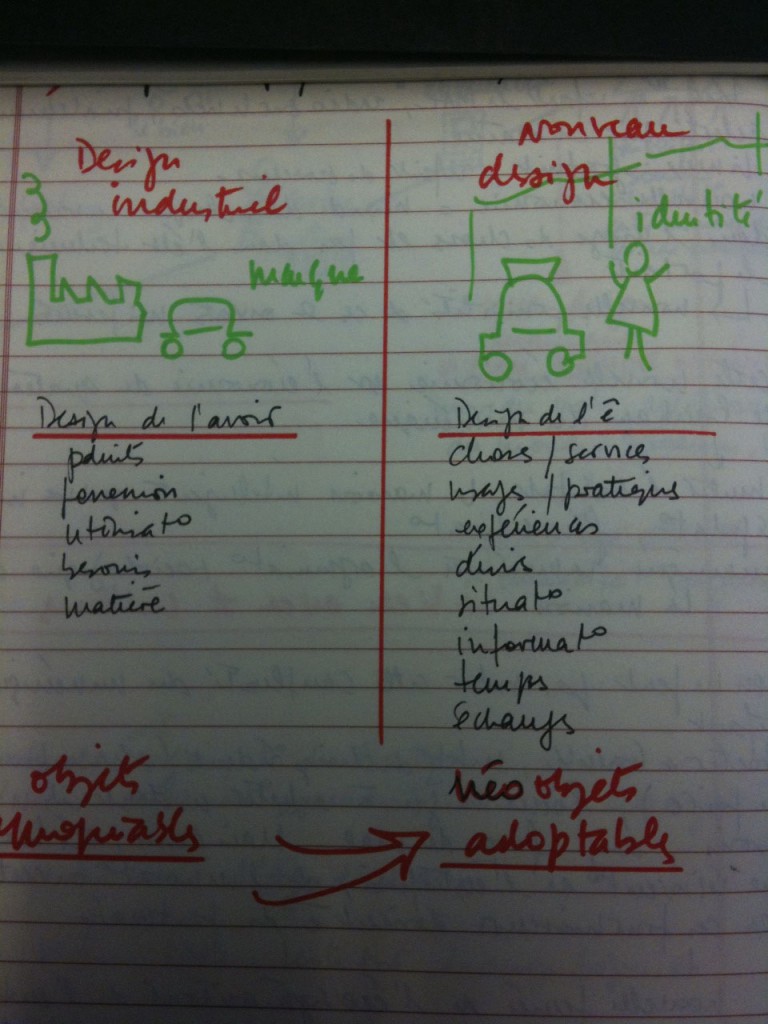 Design
industriel
marque
Design de l'avoir
pduits
fonction
utilisat°
besoins
matière
objets
Nouveau
design
identité
Design de l'ê
choses / services
usages / pratiques
expériences
désirs
situat°
informat°
temps
échanges
néo objets
adoptables